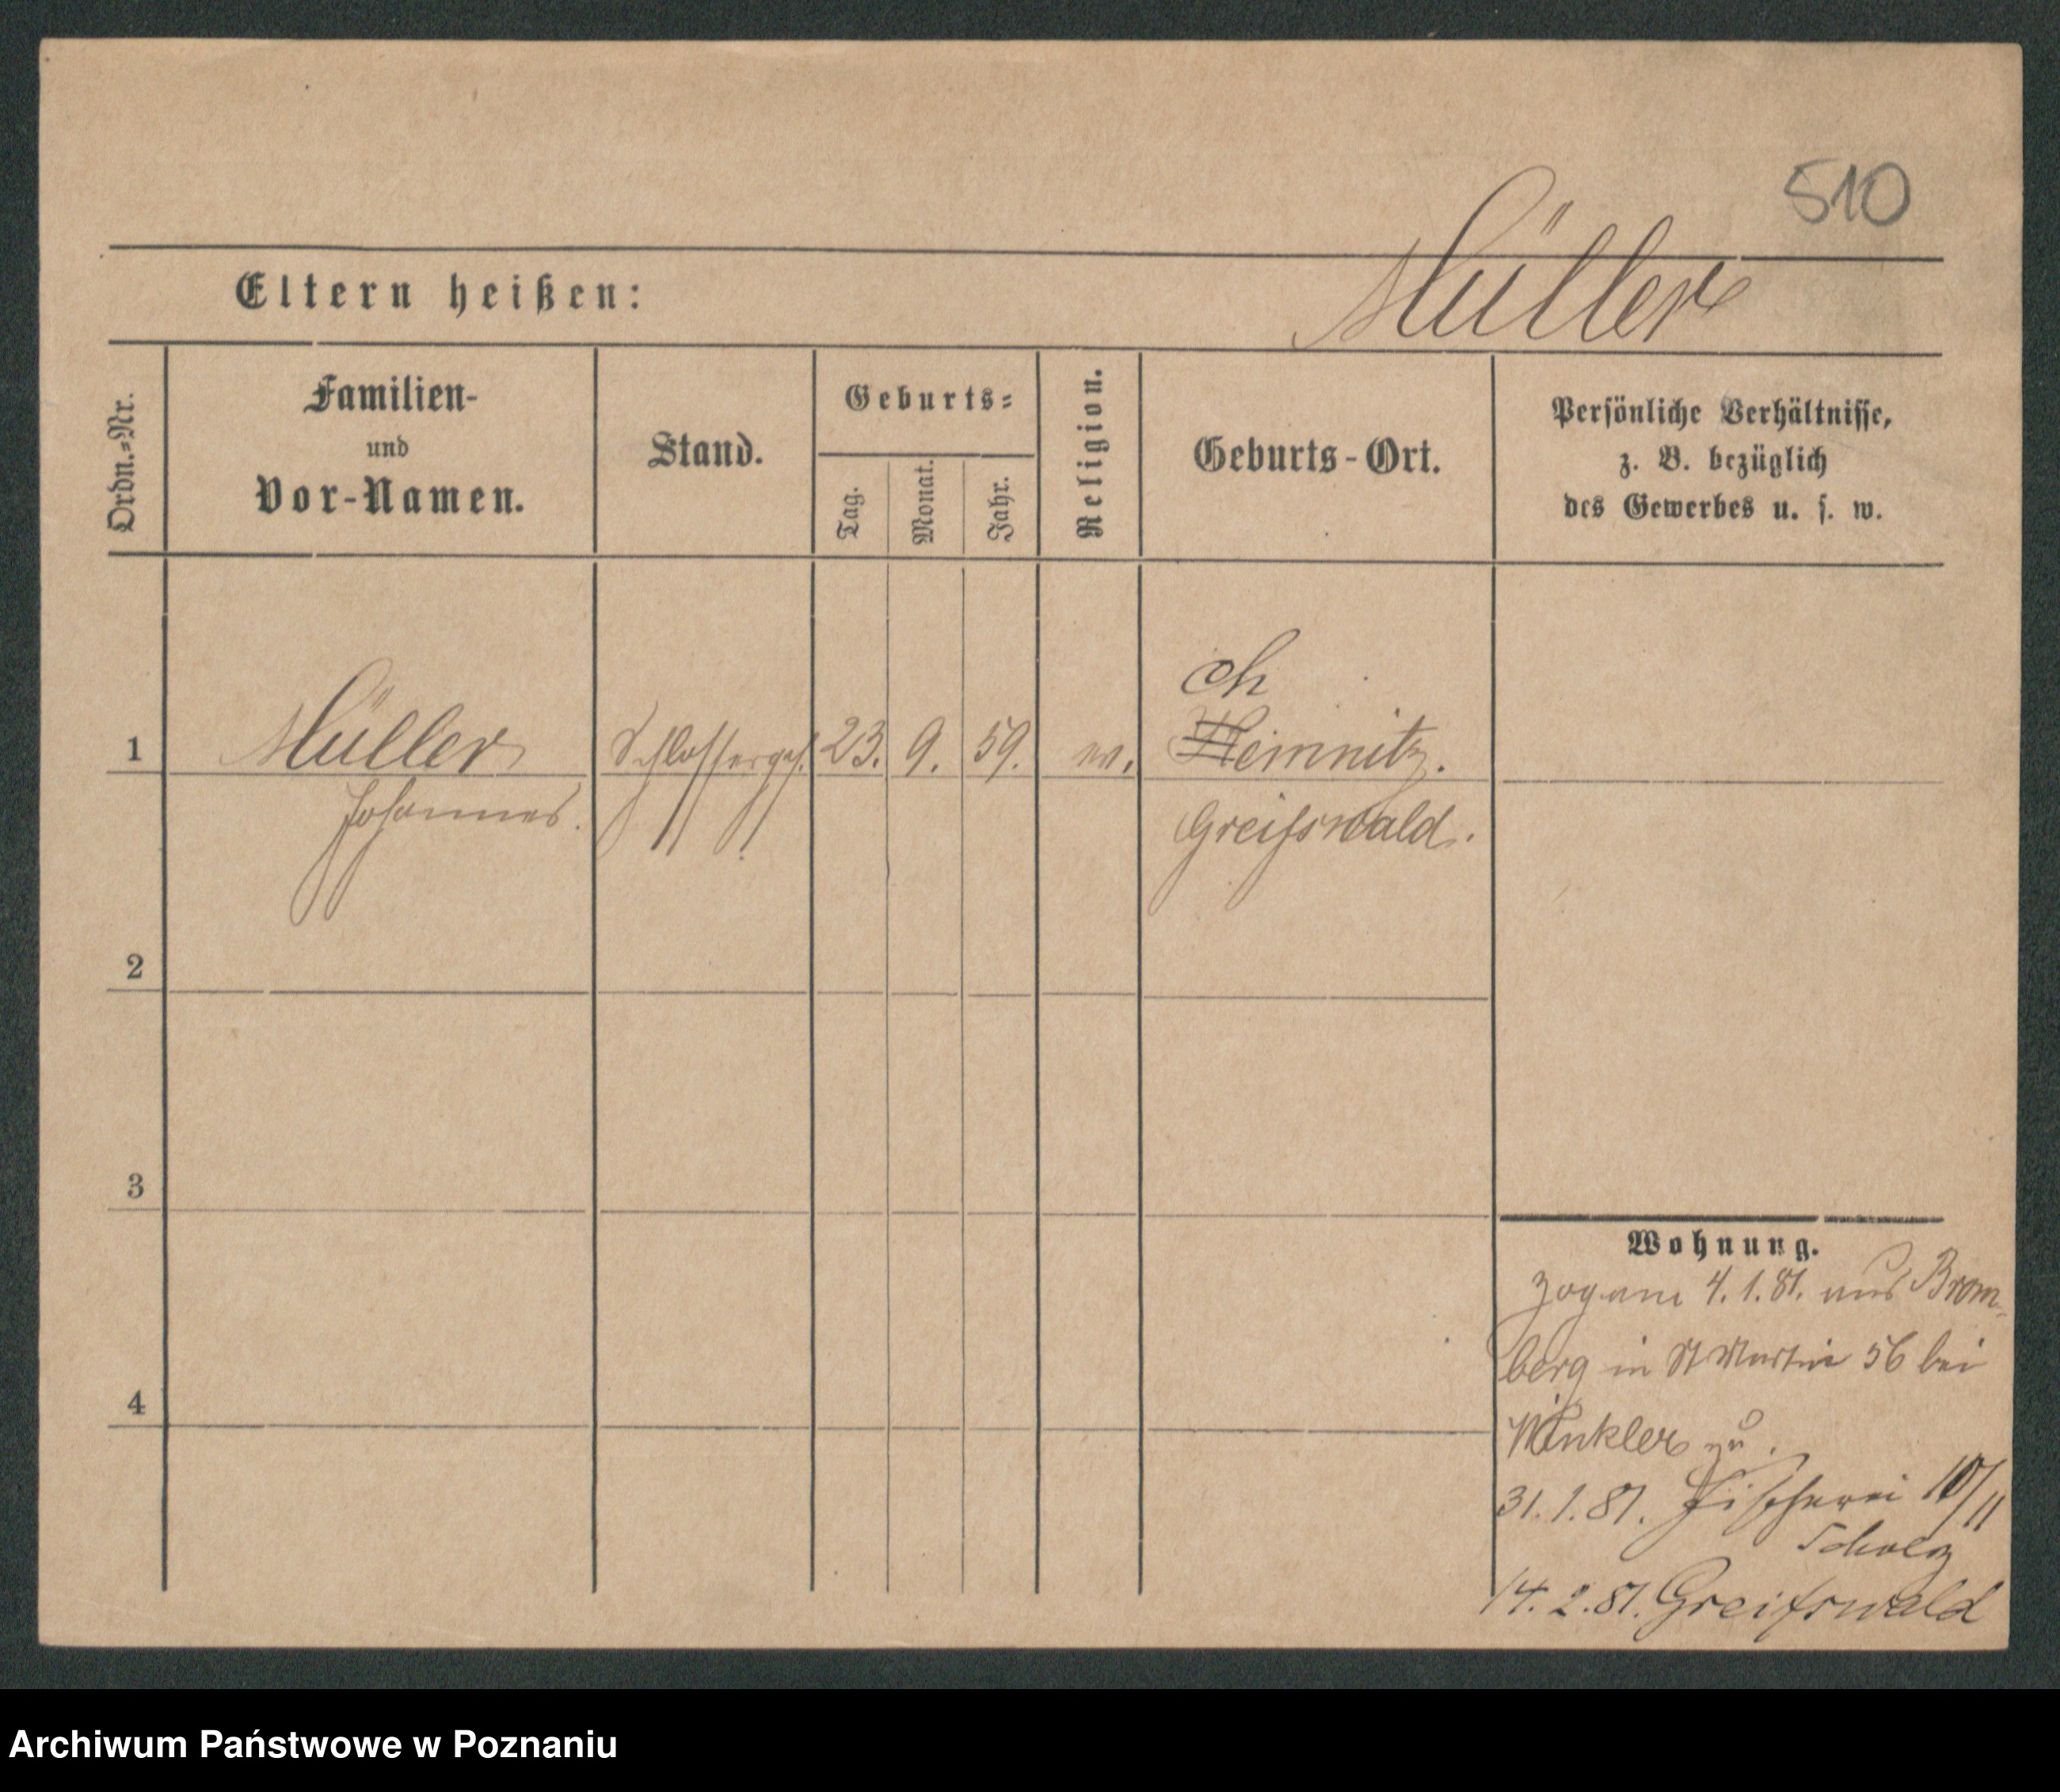 510
Müller
Eltern heißen:
Ordn.=Nr.
Familien-
und
Vor-Namen.
Stand.
Geburts=
Tag.
Monat.
Jahr.
Religion.
Geburts-Ort.
Persönliche Verhältnisse,
z. B. bezüglich
des Gewerbes u. s. w.
1
Müller
Johannes.
Schlosserges.
23. 9. 59.
Ch
Hemnitz.
Greifswald.
2
3
4
Wohnung.
Zog am 4.1.81. aus Brom-
berg in St Martin 56 bei
Winkler zu.
31.1.81. Fischerei 10/11
Scholz
14.2.81. Greifswald
Archiwum Państwowe w Poznaniu